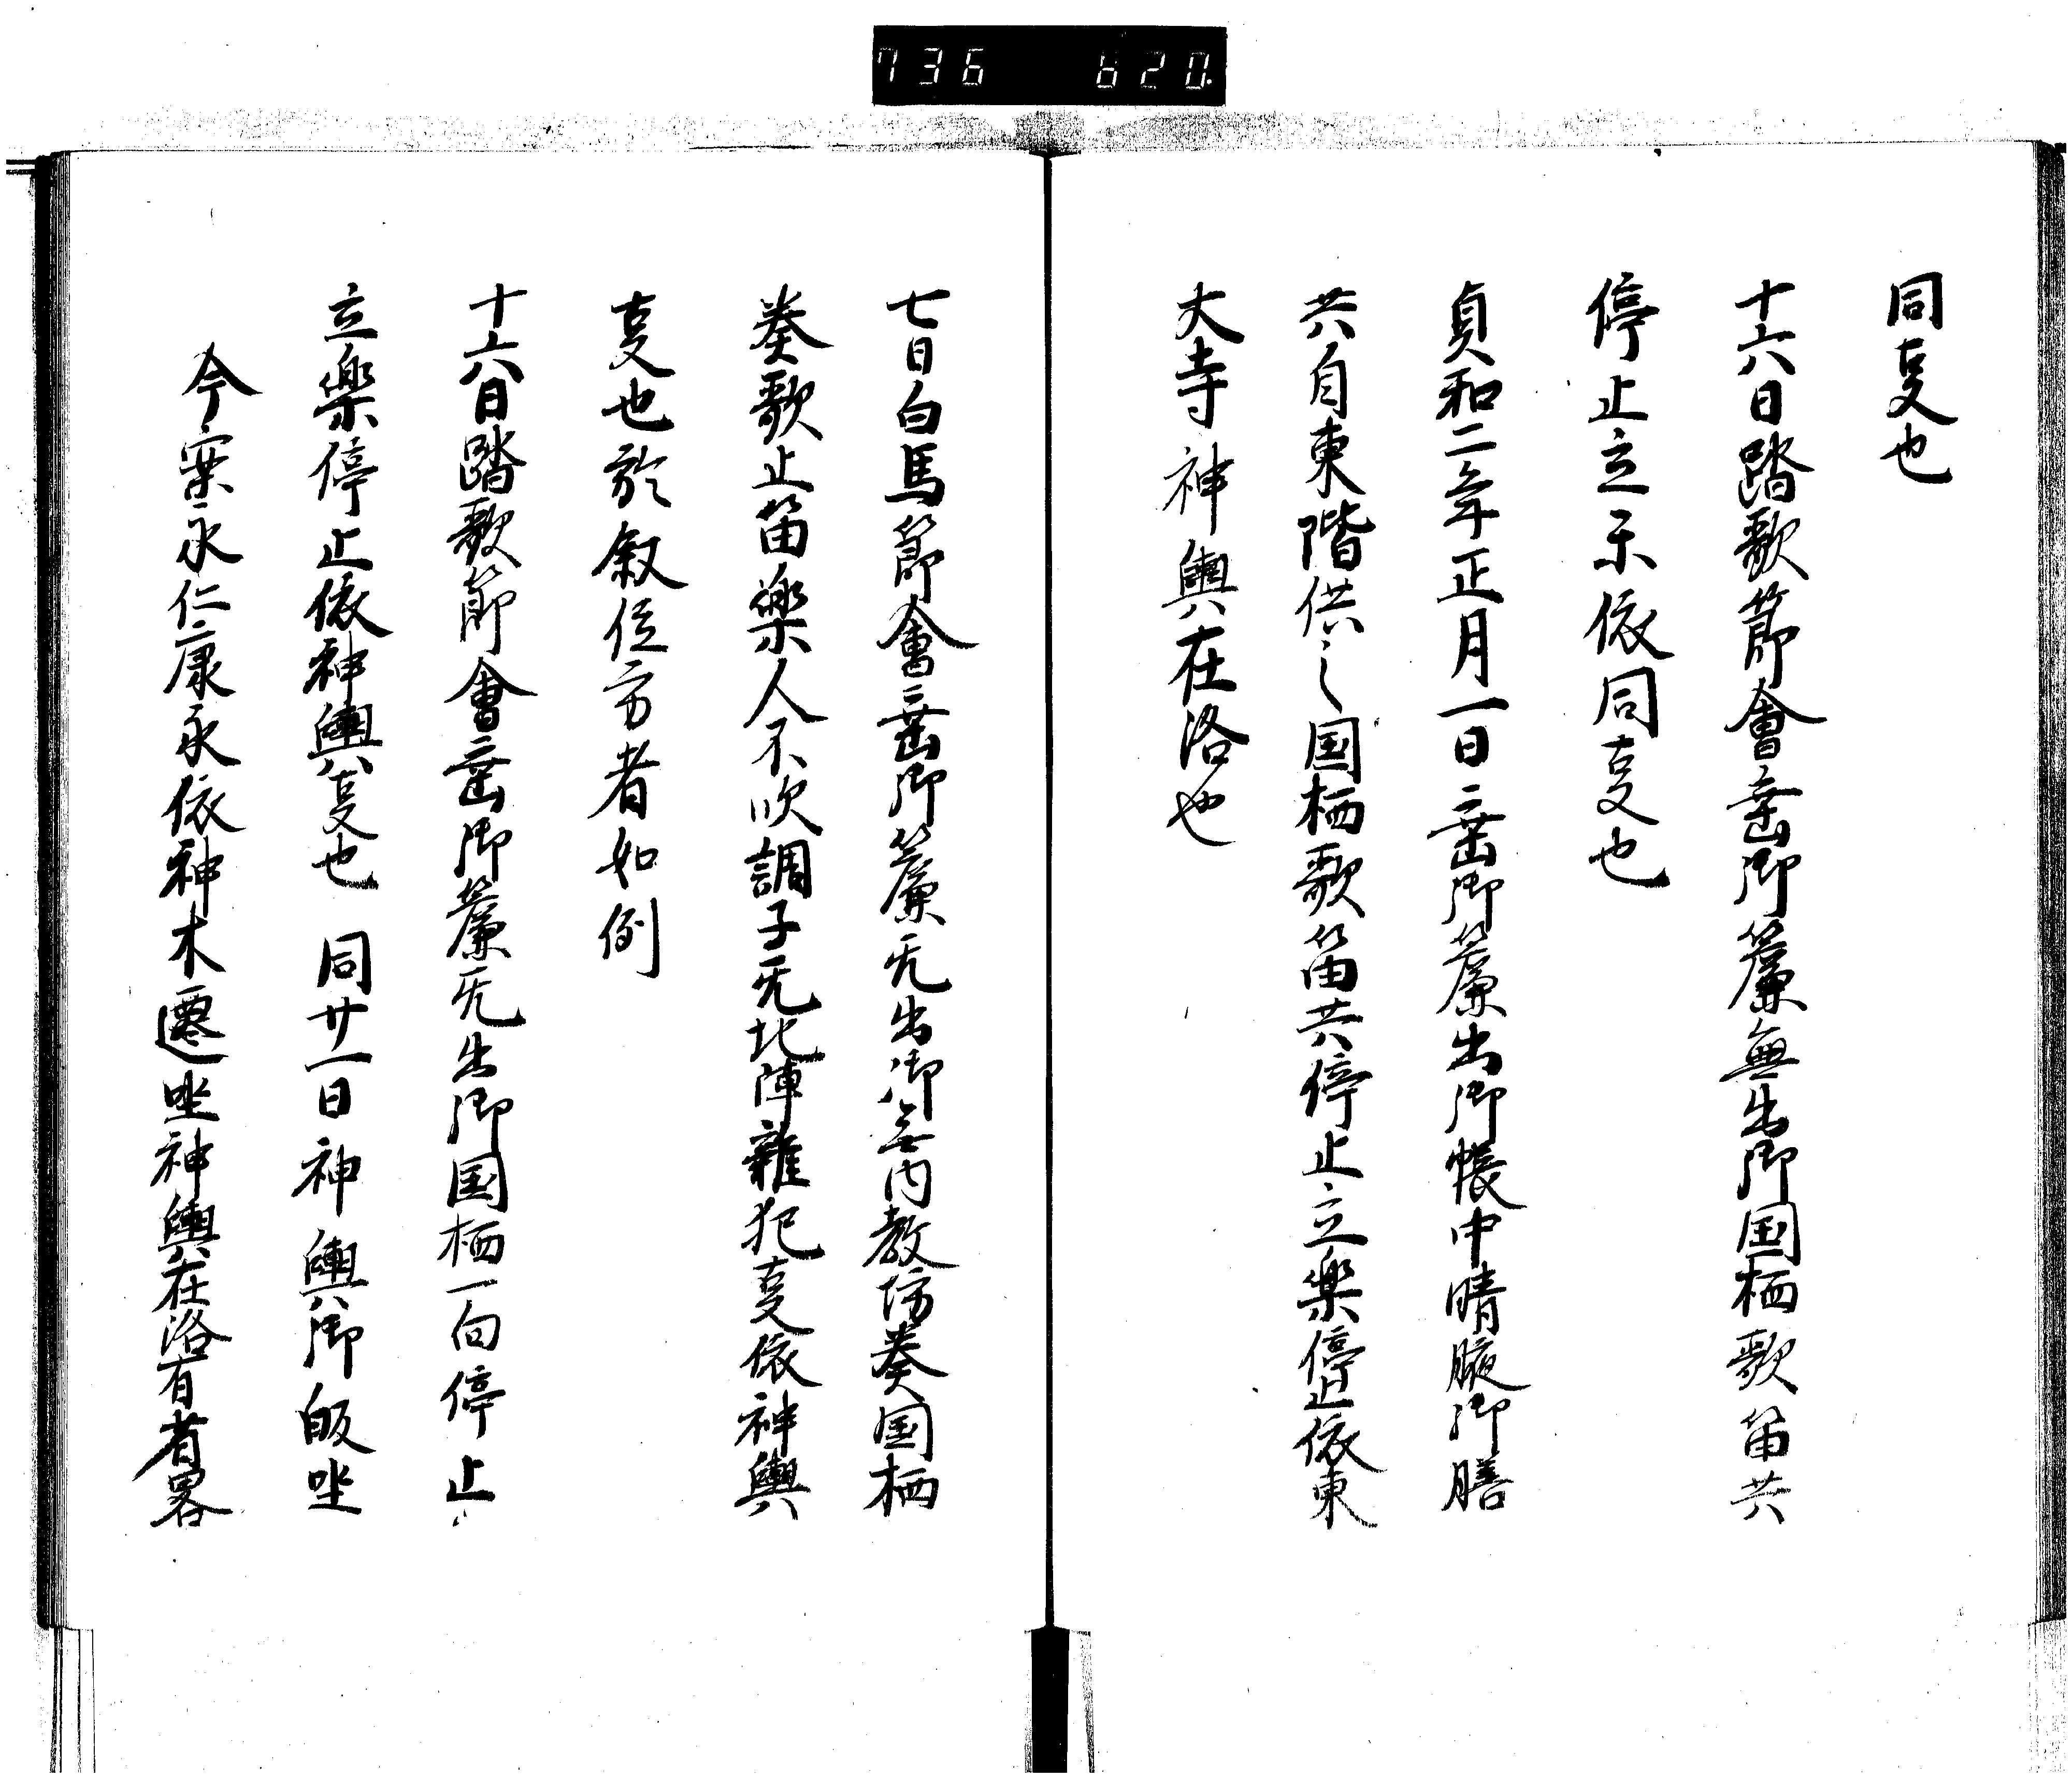 736 620.
同叓也
十六日踏歌節會垂御簾無出御国栖歌笛共
停止立示依同叓也
貞和二年正月一日垂御簾出御帳中晴腋御膳
共自東階供之国栖歌笛共停止立楽停止依東
大寺神輿在洛也
七日白馬節會垂御簾无出御無内教坊奏国栖
奏歌止笛樂人不吹調子无北陣雜犯叓依神輿
叓也於叙位方者如例
十六日踏歌節會垂御簾无出御国栖一向停止
立楽停止依神輿叓也 同廿一日神輿御皈坐
今案永仁康永依神木遷坐神輿在洛有省畧